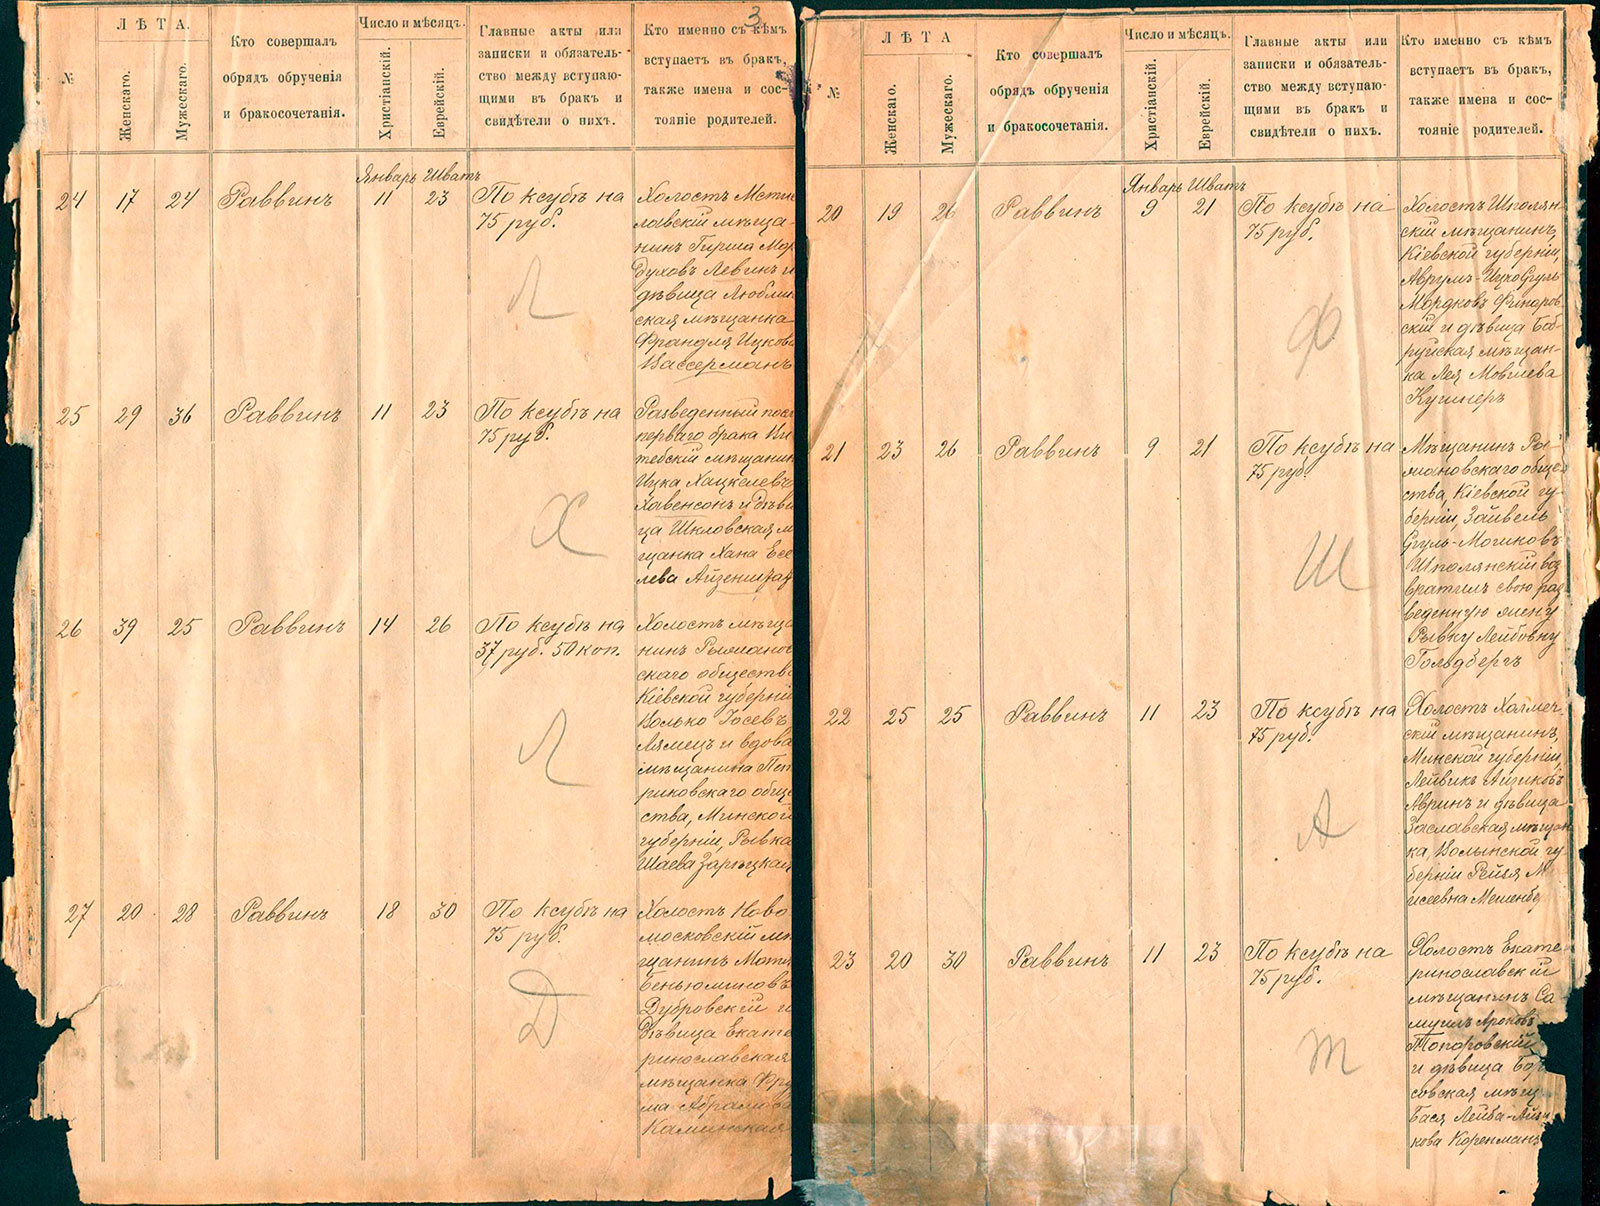 3.
№
ЛѢТА.
Женскаго.
Мужескаго.
Кто совершалъ
обрядъ обрученія
и бракосочетанія.
Число и мѣсяцъ.
Христіанскій.
Еврейскій.
Главные акты или
записки и обязатель-
ство между вступаю-
щими въ бракъ и
свидѣтели о нихъ.
Кто именно съ кѣмъ
вступаетъ въ бракъ,
также имена и сос-
тояніе родителей.
Январь Шватъ
24 17 24 Раввинъ 11 23
По ксубѣ на
75 руб.
Холостъ Мсти
лавскій мѣща-
нинъ Гирша Мор
духовъ Левинъ и
дѣвица Люблин
ская мѣщанка
Франдля Ицкова
Вассерманъ
Л
25 29 36 Раввинъ 11 23
По ксубѣ на
75 руб.
Разведенный посл
перваго брака Ви
тебскій мѣщанин
Ицка Хацкелевъ
Хавенсонъ и дѣви
ца Шкловская м
щанка Хана Есе
лева Айзенштад
Х
26 39 25 Раввинъ 14 26
По ксубѣ на
37 руб. 50 коп.
Холостъ мѣща
нинъ Рымановс
скаго общества
Кіевской губерніи
Волько Іосевъ
Лямецъ и вдова
мѣщанина Пет
риковскаго обще
ства, Минской
губерніи, Рывка
Шаева Зарѣцкая
Л
27 20 28 Раввинъ 18 30
По ксубѣ на
75 руб.
Холостъ Ново
московскій мѣ
щанинъ Моти
Беньюминовъ
Дубровскій и
дѣвица Екате
ринославская
мѣщанка Фру
ма Абрамова
Каминская
Д
№
ЛѢТА
Женскаго.
Мужескаго.
Кто совершалъ
обрядъ обрученія
и бракосочетанія.
Число и мѣсяцъ.
Христіанскій.
Еврейскій.
Главные акты или
записки и обязатель-
ство между вступаю-
щими въ бракъ и
свидѣтели о нихъ.
Кто именно съ кѣмъ
вступаетъ въ бракъ,
также имена и сос-
тояніе родителей.
Январь Шватъ
20 19 26 Раввинъ 9 21
По ксубѣ на
75 руб.
Холостъ Шполян-
скій мѣщанинъ,
Кіевской губерніи,
Аврумъ-Ицхо Сруль
Мордковъ Фукаров
скій и дѣвица Боб-
руйская мѣщан-
ка Лея Мовшева
Кушнеръ
Ф
21 23 26 Раввинъ 9 21
По ксубѣ на
75 руб.
Мѣщанинъ Ро-
мановскаго обще-
ства, Кіевской гу-
берніи, Зайвель
Сруль-Мошковъ
Шполянскій воз
вратилъ свою раз
веденную жену
Рывку Лейбовну
Гольдбергъ
Ш
22 25 25 Раввинъ 11 23
По ксубѣ на
75 руб.
Холостъ Холмеч-
скій мѣщанинъ,
Минской губерніи,
Лейвикъ Айзиковъ
Авринъ и дѣвица
Заславская мѣщан
ка, Волынской гу-
берніи Рейзя М
исеевна Мешенбе
А
23 20 30 Раввинъ 11 23
По ксубѣ на
75 руб.
Холостъ Екате
ринославскій
мѣщанинъ Са-
муилъ Ароковъ
Топоровскій
и дѣвица Бори
совская мѣщ
Бася Лейба-Айзи
кова Коренманъ
Т